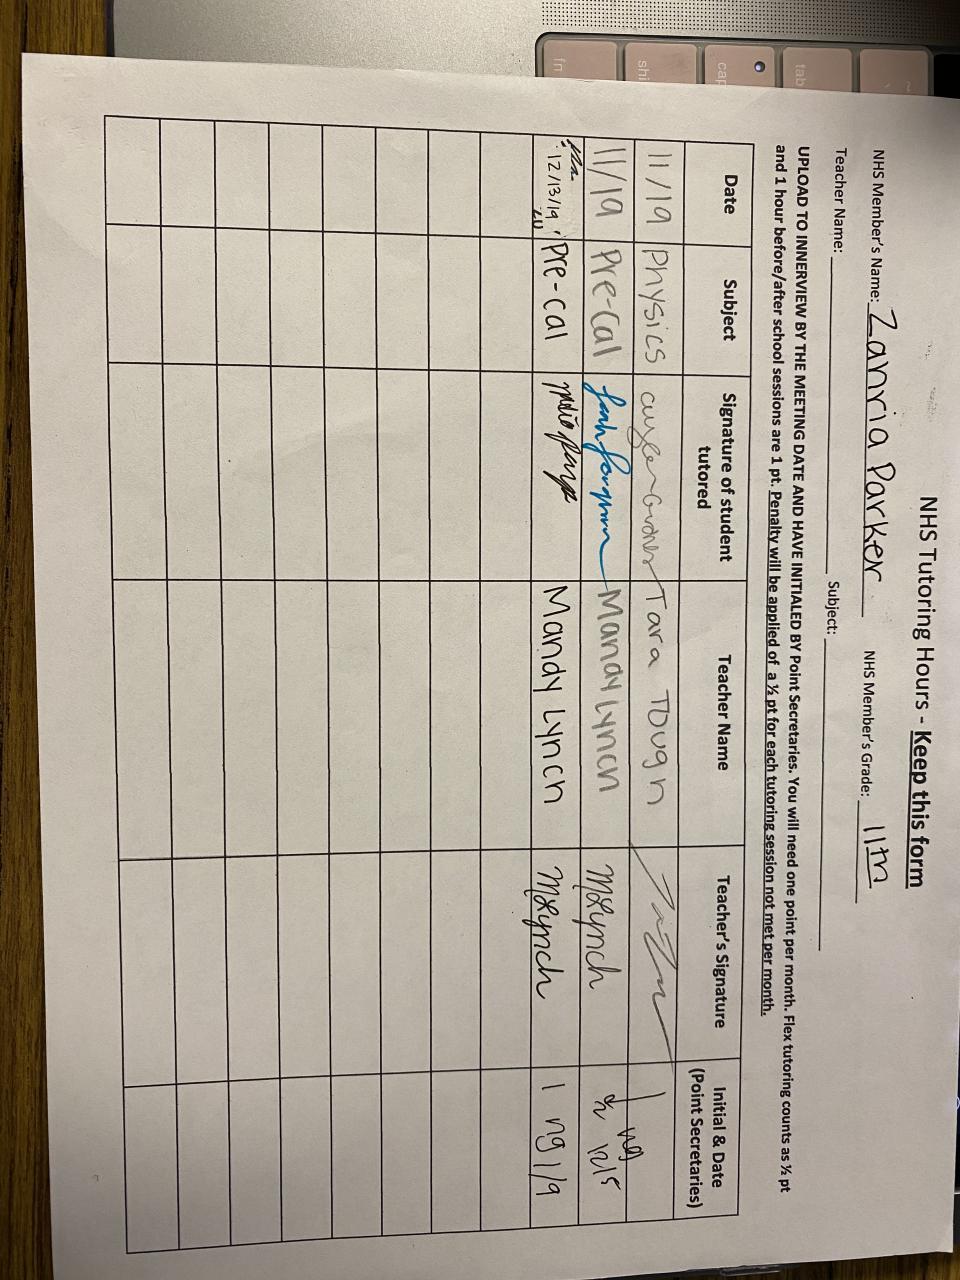 NHS Tutoring Hours - Keep this form
NHS Member's Name: Zanria Parker NHS Member's Grade: 11th
Teacher Name: Subject:
UPLOAD TO INNERVIEW BY THE MEETING DATE AND HAVE INITIALED BY Point Secretaries. You will need one point per month. Flex tutoring counts as ½ pt
and 1 hour before/after school sessions are 1 pt. Penalty will be applied of a ½ pt for each tutoring session not met per month.
Date Subject Signature of student tutored Teacher Name Teacher's Signature Initial & Date (Point Secretaries)
11/19 Physics Tara Tough 1
11/19 Pre-Cal Mandy Lynch MLynch ng 12/5
12/13/19 Pre-cal Mandy Lynch MLynch 1 ng 1/9
tab
cap
shi
fn